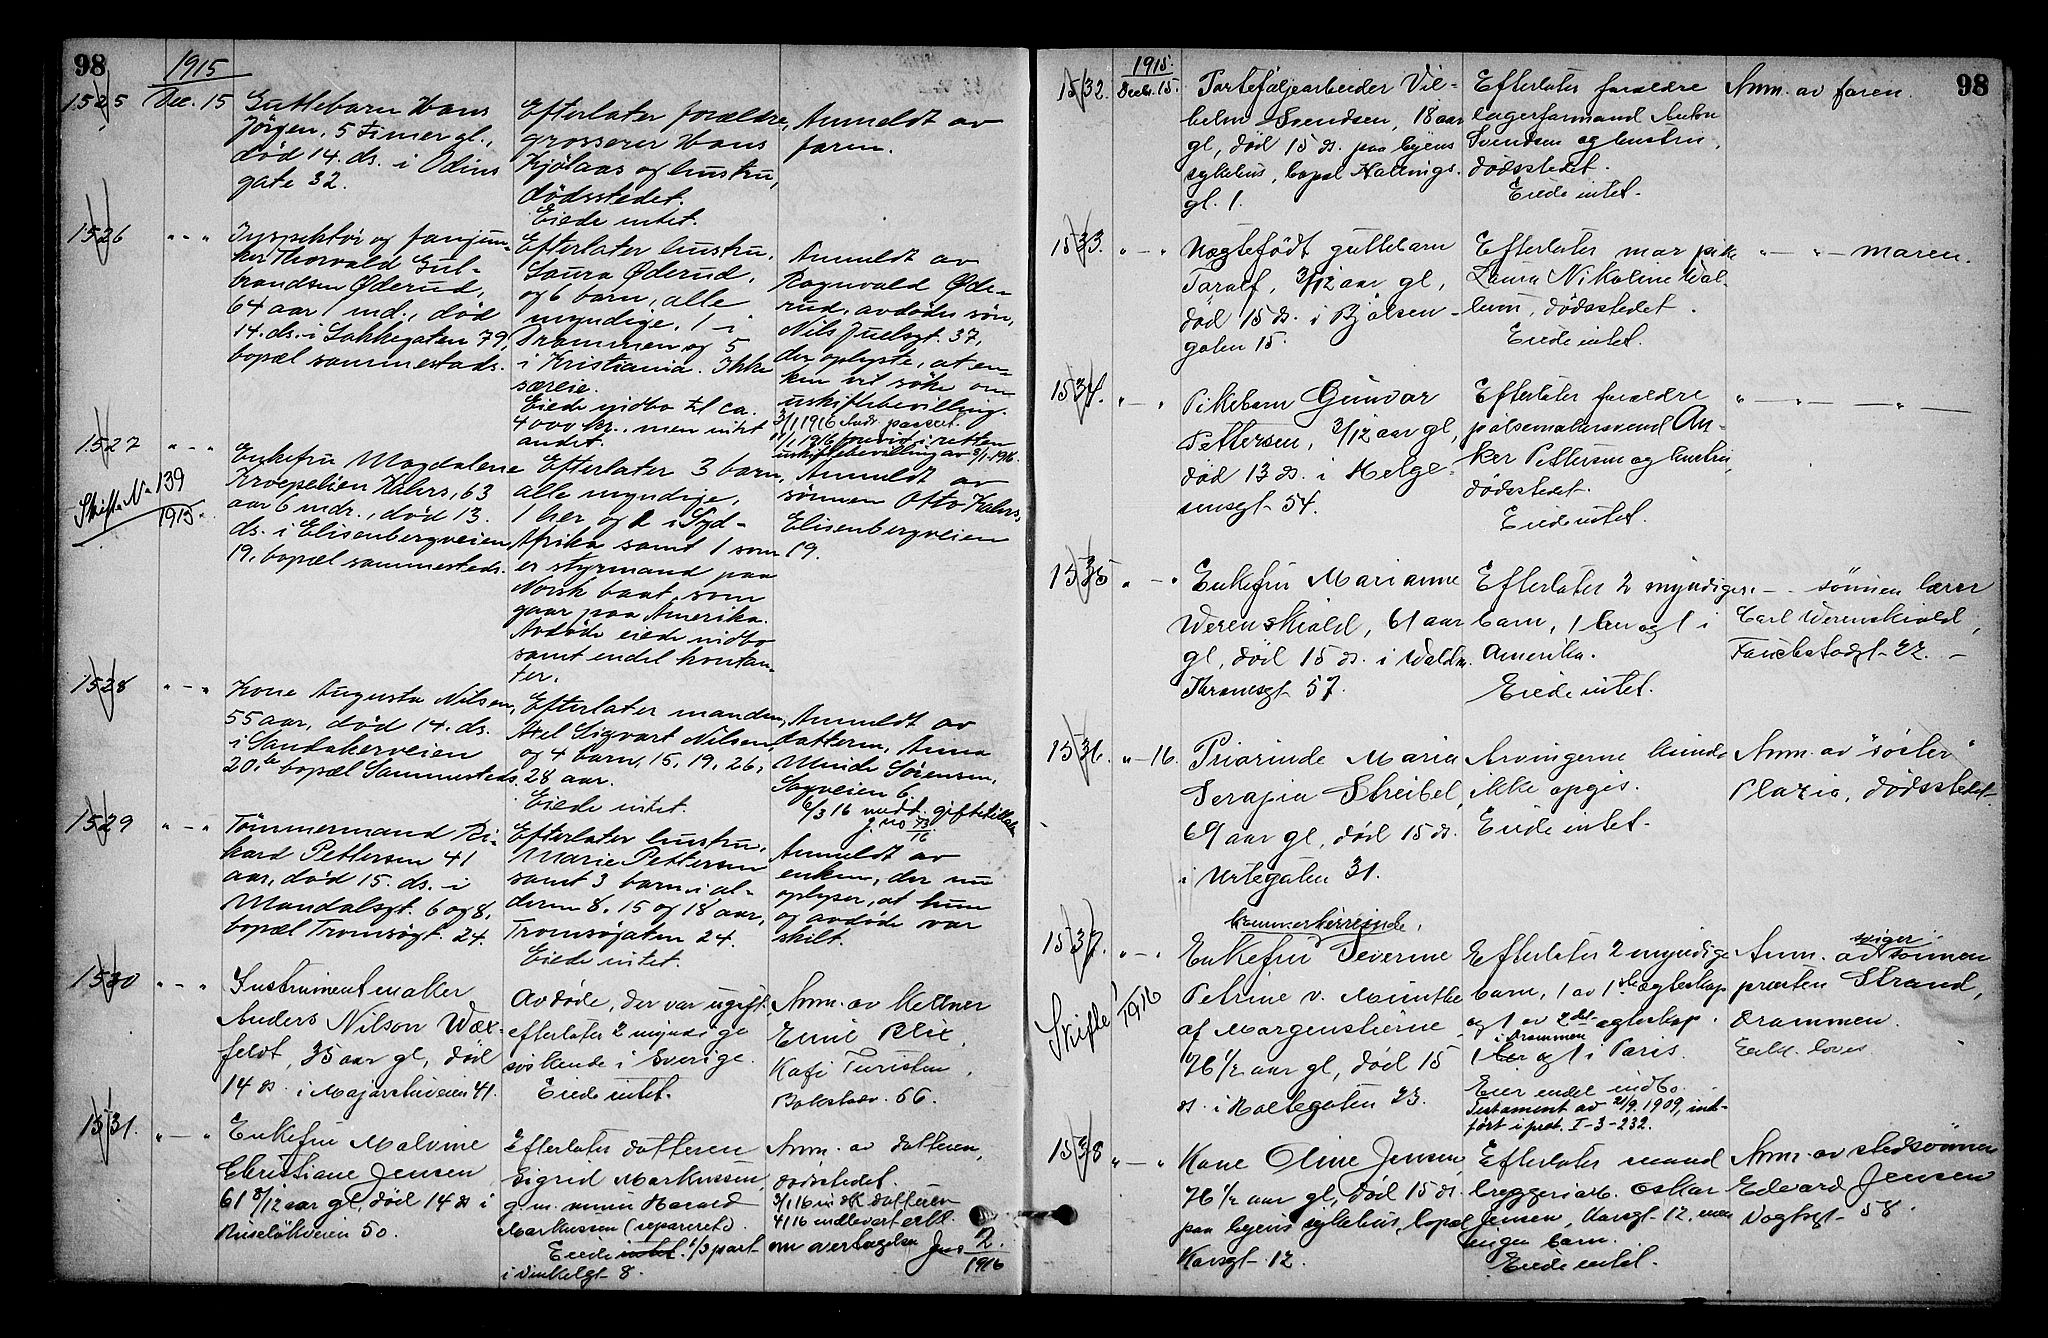 98
1915
1525
Dec. 15
Guttebarn Hans
Jörgen, 5 timer gl.,
död 14. ds. i Odins
gate 32.
Efterlater forældre,
grosserer Hans
Kjölaas og hustru,
dödsstedet.
Eiede intet.
Anmeldt av
faren.
1526
" - "
Inspektör og fanejun-
ker Thorvald Gul-
brandsen Øderud,
64 aar 1 md., död
14. ds. i Jakkegaten 79,
bopæl sammesteds.
Efterlater hustru,
Laura Øderud,
og 6 barn, alle
myndige, 1 i
Drammen og 5
i Kristiania. Ikke
særeie.
Eiede indbo til ca.
4000 kr., men intet
andet.
Anmeldt av
Ragnvald Øde-
rud, avdödes sön,
Nils Juelsgt. 37,
der oplyste, at en-
ken vil söke om
uskiftebevilling.
3/1 1916 Andr. passert.
1916 forevist i retten
uskiftebevilling av 3/1 1916.
1527
" - "
Skifte No 139
1915
Enkefru Magdalene
Kroepelien Kahrs, 63
aar 6 mdr., död 13.
ds. i Elisenbergveien
19, bopæl sammesteds.
Efterlater 3 barn,
alle myndige,
1 her og 2 i Syd-
Afrika samt 1 som
er styrmand paa
Norsk baat, som
gaar paa Amerika.
Avdöde eiede indbo
samt endel kontan-
ter.
Anmeldt av
sönnen Otto Kahrs,
Elisenbergveien
19.
1528
" - "
Kone Augusta Nilsen,
55 aar, död 14. ds.
i Sandakerveien
20, b bopæl sammesteds.
Efterlater manden,
Axel Sigvart Nilsen,
og 4 barn, 15, 19, 26,
28 aar.
Eiede intet.
Anmeldt av
datteren, Anna
Minde Sörensen,
Sagveien 6.
6/3 16 medt. giftetillatn.
1529
" - "
Tömmermand Ri-
kard Pettersen 41
aar, död 15. ds. i
Mandalsgt. 6 og 8,
bopæl Tromsögt. 24.
Efterlater hustru,
Marie Pettersen
samt 3 barn i al-
deren 8, 15 og 18 aar,
Tromsögaten 24.
Eiede intet.
Anmeldt av
enken, der nu
oplyser, at hun
og avdöde var
skilt.
1530
" - "
Instrumentmaker
Anders Nilson Wax-
feldt, 35 aar gl, död
14 ds. i Majorstuveien 41.
Avdöde, der var ugift,
efterlater 2 myndige
söskende i Sverige.
Eiede intet.
Anm. av kellner
Emil Blix,
Kafé Turisten,
Bokstadv. 66.
1531.
" - "
Enkefru Malvine
Christiane Jensen
61 8/12 aar gl, död 14 ds i
Ruselökveien 50.
Efterlater datteren
Sigrid Markussen,
g.m. murer Harald
Markussen (separeret).
Eiede intet. 1/3 part
i Vinkelgt. 8.
Anm. av datteren,
dödsstedet.
3/1 16 datteren
4/1 16 indlevert erkl.
om overtagelse
2.
1916
1532.
1915.
Decbr. 15.
Porteföljearbeider Vil-
helm Svendsen, 18 aar
gl, död 15 ds. paa byens
sykehus, bopæl Hallings-
gt. 1.
Efterlater forældre
lagerformand Anton
Svendsen og hustru,
dödsstedet.
Eiede intet.
Anm. av faren.
98
1533.
" - "
Uægtefödt guttebarn
Toralf, 3/12 aar gl,
död 15 ds. i Bjölsen-
gaten 15.
Efterlater mor pike
Laura Nikoline Wal-
lum, dödsstedet.
Eiede intet.
" - " - moren.
1534.
" - "
Pikebarn Gunvor
Pettersen, 3/12 aar gl,
död 13 ds. i Helge-
sensgt. 54.
Efterlater forældre
pölsemakersvend An-
ker Pettersen og hustru,
dödsstedet.
Eiede intet.
" - " - " -
1535
" - "
Enkefru Marianne
Werenskiold, 61 aar
gl, död 15 ds. i Waldm.
Thranesgt. 57.
Efterlater 2 myndige
barn, 1 her og 1 i
Amerika.
Eiede intet.
" - - sönnen lærer
Carl Werenskiold,
Fauchaldsgt. 22.
1536.
" - 16.
Priorinde Maria
Serapia Streibel,
69 aar gl, död 15 ds.
i Urtegaten 31.
Arvingerne kunde
ikke opgis.
Eiede intet.
Anm. av "söster"
Plazia, dödsstedet.
1537.
" - "
Skifte 1
1916
kammerherreinde,
Enkefru Severine
Petrine v. Munthe
af Morgenstierne
76 1/2 aar gl, död 15
ds. i Holtegaten 23.
Efterlater 2 myndige
barn, 1 av 1ste egteskap
og 1 av 2det egteskap.
i Drammen
1 her og 1 i Paris.
Eier endel indbo.
Testament av 21/9. 1909, ind-
fört i prot. I-3-232.
sviger
Anm. av sönnen
presten Strand,
Drammen.
1538
" - "
Kone Oline Jensen,
76 1/2 aar gl, död 15 ds.
paa byens sykehus, bopæl
Korsgt. 12.
Efterlater mand
bryggeriarb. Oskar
Jensen, Korsgt. 12, men
ingen barn.
Eiede intet.
Anm. av stedsönnen
Edvard Jensen
Vogtsgt. 58.